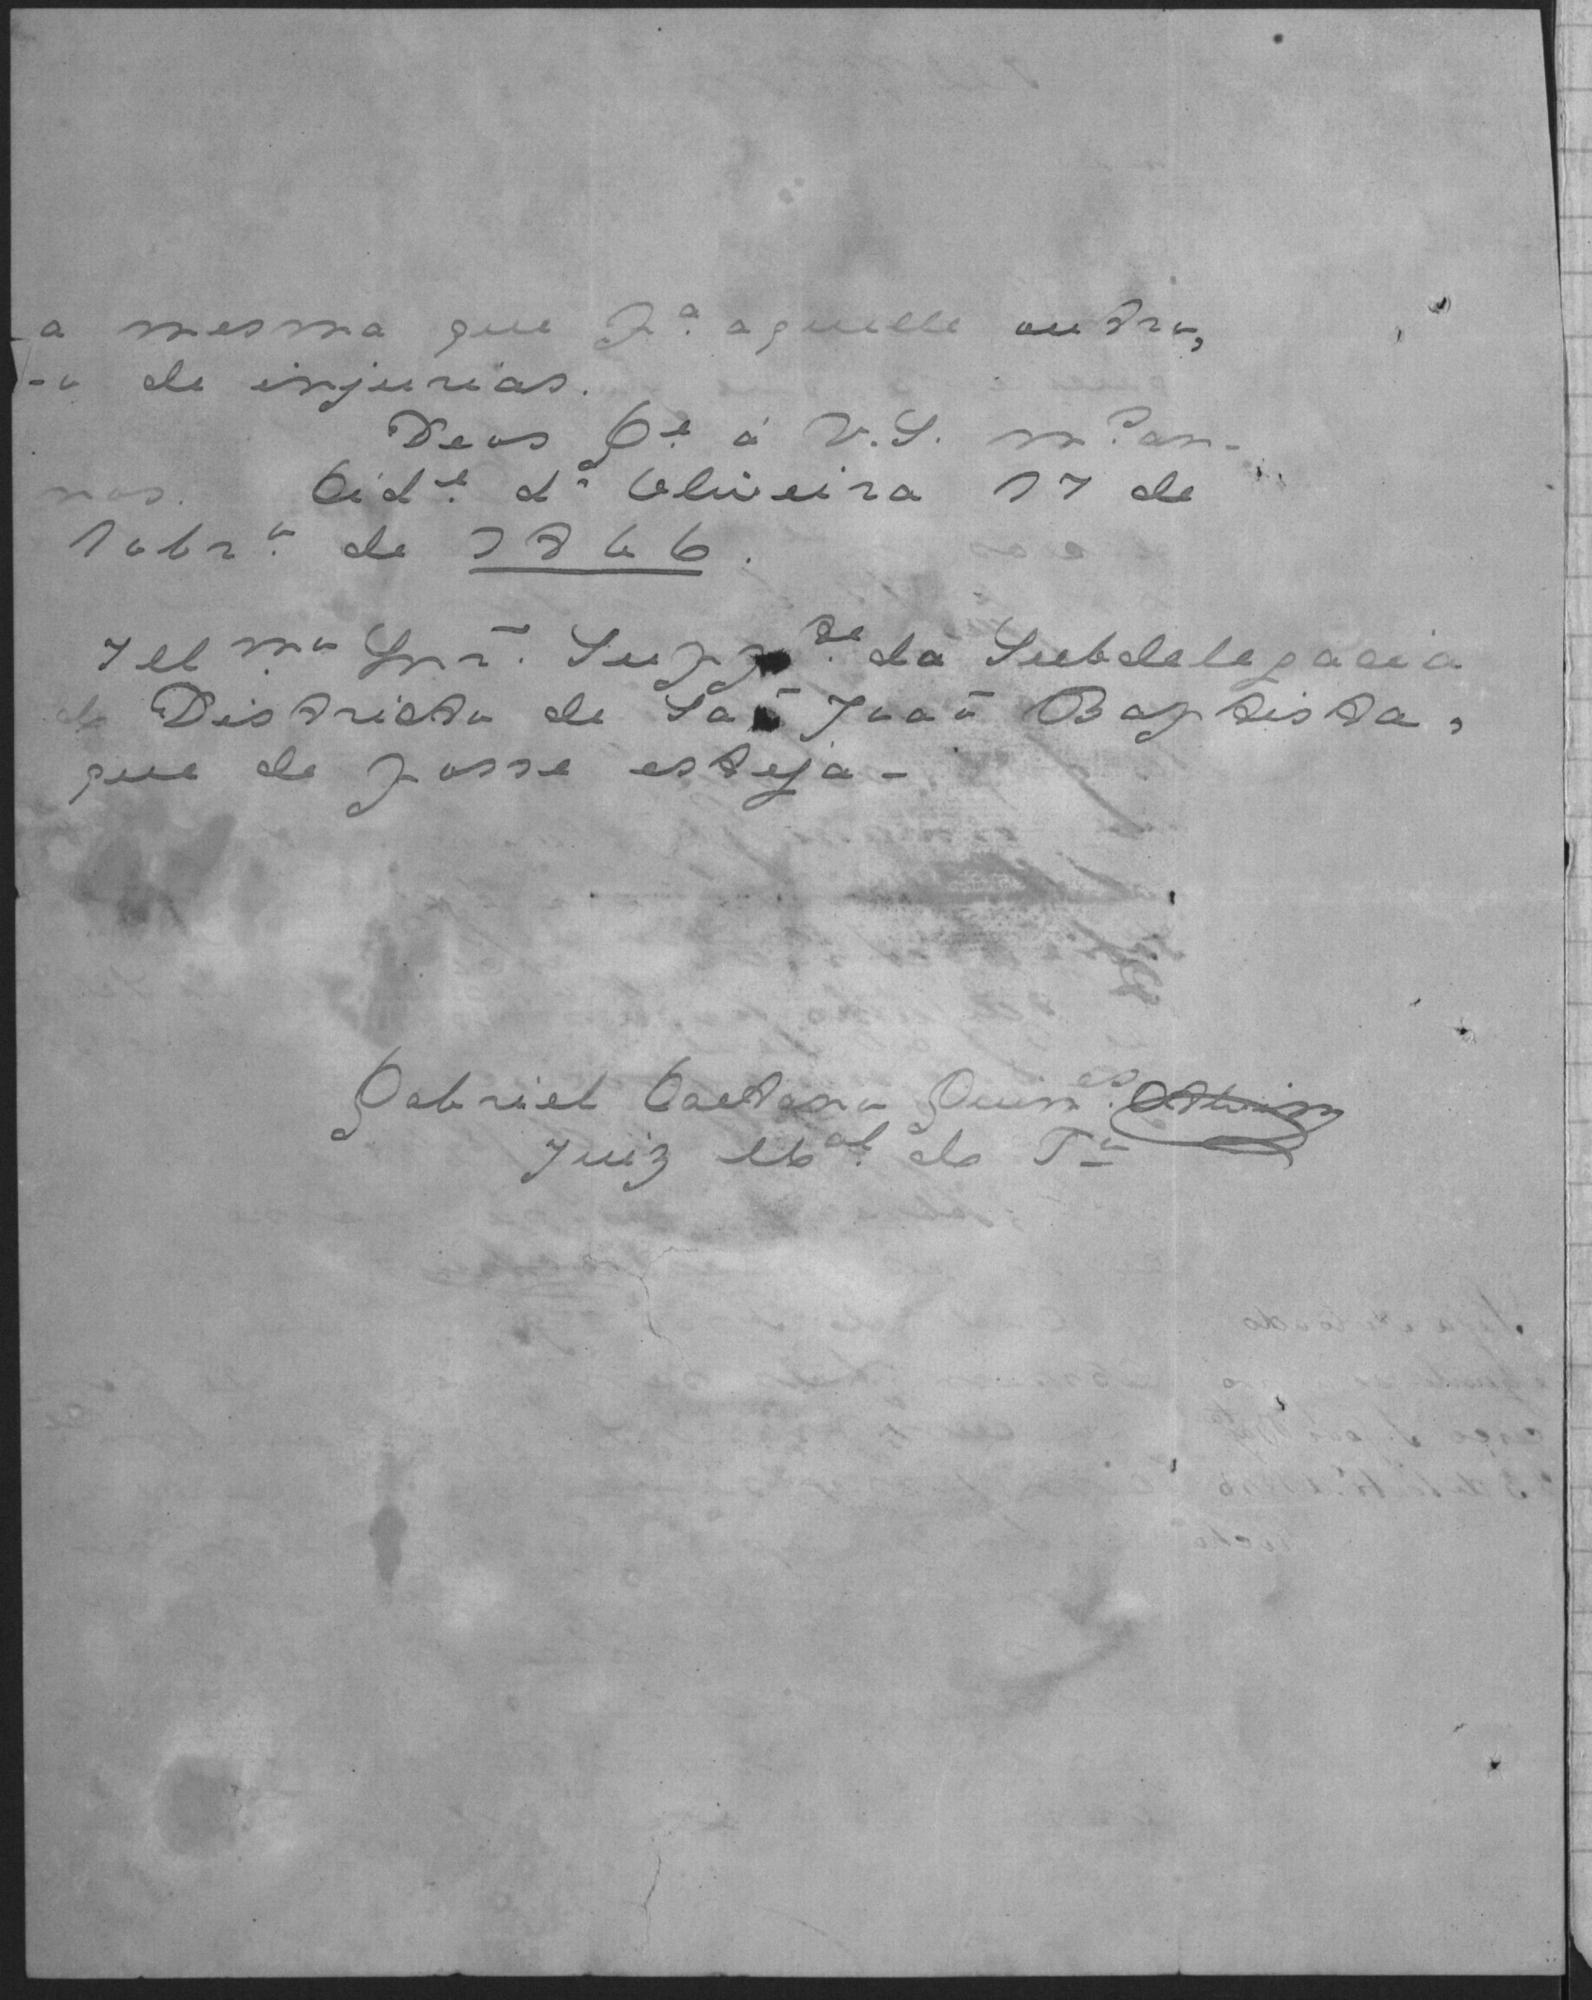 a mesma que pª aquelle outro,
-o de injurias.
Deos Gᵉ á V.S. mˢ an-
nos. Cidᵉ dª Oliveira 17 de
9obrº de 1866.
Illᵐº Snr̃. Suppᵗᵉ da Subdelegacia
do Districto de Saõ Joaõ Baptista,
que de posse esteja-
Gabriel Caetano Guimᵉˢ Alvim
Juiz Mᵃˡ do Tº